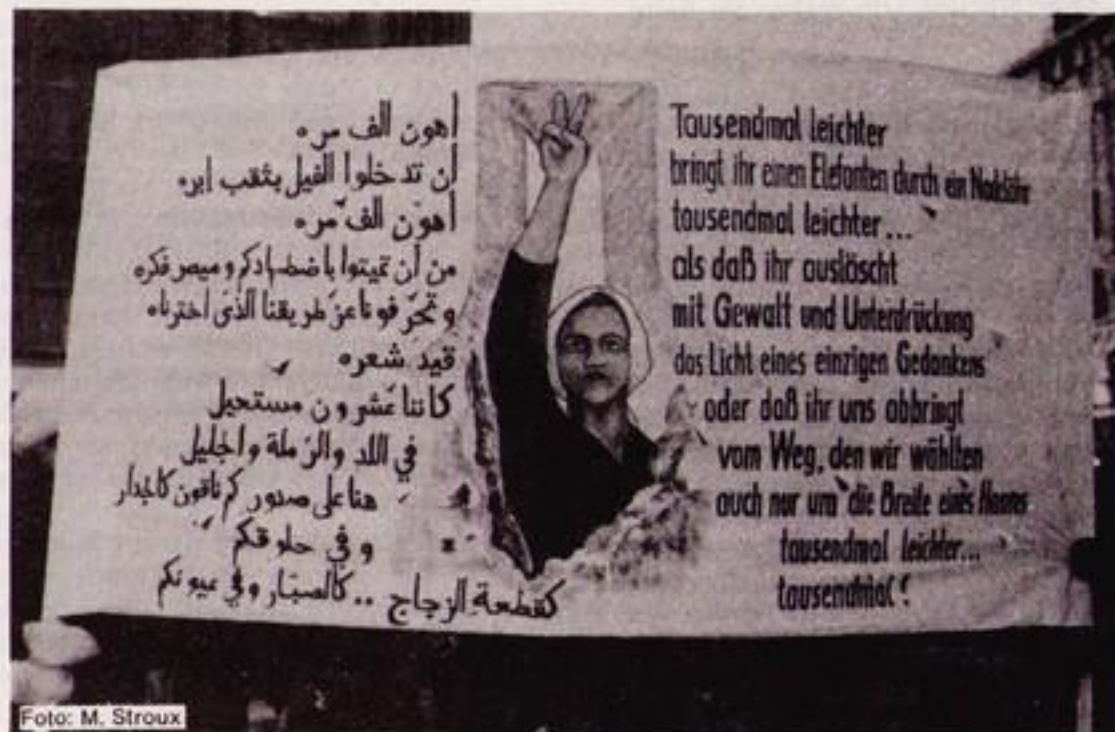 أهون الف مره
أن تدخلوا الفيل بثقب ابره
أهون الف مره
من أن تميتوا باضطهادكم وميض فكره
وتحرفونا عن طريقنا الذي اخترناه
قيد شعره
كاننا عشرون مستحيل
في اللد والرملة والجليل
هنا على صدوركم باقون كالجدار
وفي حلوقكم
كقطعة الزجاج .. كالصبار وفي عيونكم
Tausendmal leichter
bringt ihr einen Elefanten durch ein Nadelöhr
tausendmal leichter...
als daß ihr auslöscht
mit Gewalt und Unterdrückung
das Licht eines einzigen Gedankens
oder daß ihr uns abbringt
vom Weg, den wir wählten
auch nur um die Breite eines Haares
tausendmal leichter...
tausendmal!
Foto: M. Stroux